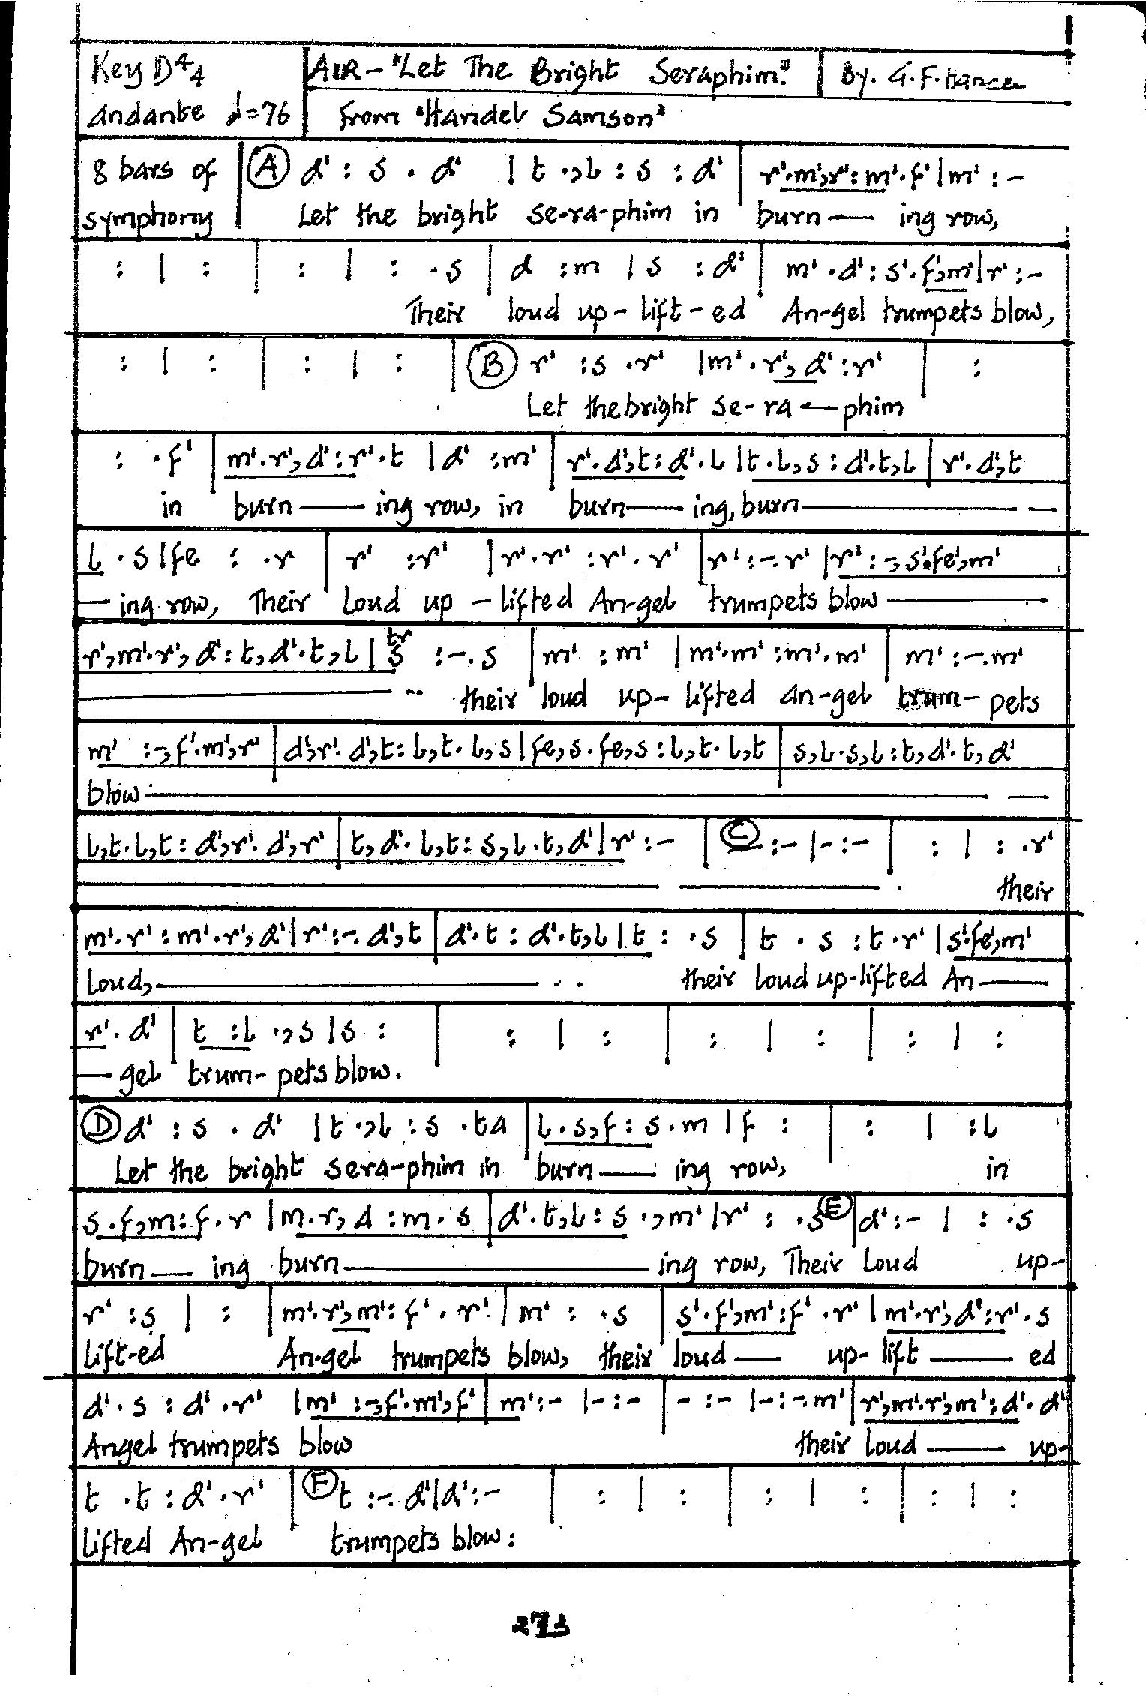 Key D 4/4 AIR - "Let The Bright Seraphim." By. G.F.
Andante ♩=76 from "Handel Samson"
8 bars of (A) d' : s . d' | t .,l : s : d' | r'.m',r' : m'.f' | m' : -
symphony Let the bright se-ra-phim in burn— ing row,
: | : | : | : .s | d :m | s :d' | m' .d' : s'.f',m' | r' :-
Their loud up-lift-ed An-gel trumpets blow,
: | : | : | : | (B) r' :s .r' | m' .r',d' :r' | :
Let the bright se-ra—phim
: .f' | m'.r',d' : r'.t | d' :m' | r'.d',t : d'.l | t.l,s : d'.t,l | r'.d',t
in burn— ing row, in burn— ing, burn—
l .s | fe : .r | r' :r' | r'.r' : r'.r' | r' :-.r' | r' :-,s'.fe',m'
—ing row, Their loud up-lifted An-gel trumpets blow—
r',m'.r',d' : t,d'.t,l | tr s :-.s | m' :m' | m'.m' :m'.m' | m' :-.m'
their loud up-lifted An-gel trum-pets
m' :-,f'.m',r' | d',r'.d',t : l,t.l,s | fe,s.fe,s : l,t.l,t | s,l.s,l : t,d'.t,d'
blow—
l,t.l,t : d',r'.d',r' | t,d'.l,t : s,l.t,d' | r' :- | (C) :- | - :- | : | : .r'
their
m'.r' : m'.r',d' | r' :-.d',t | d'.t : d'.t,l | t : .s | t . s : t.r' | s'.fe',m'
loud,— their loud up-lifted An—
r'.d' | t :l .,s | s : | : | : | : | : | : | :
—gel trum-pets blow.
(D) d' : s . d' | t .,l : s .ta | l.s,f : s.m | f : | : | :l
Let the bright sera-phim in burn— ing row, in
s.f,m : f.r | m.r,d : m.s | d'.t,l : s .,m' | r' : .s (E) | d' :- | : .s
burn— ing burn— ing row, Their loud up-
r' :s | : | m'.r',m' : f' . r' | m' : .s | s'.f',m' : f' .r' | m'.r',d' : r'.s
lift-ed An-gel trumpets blow, their loud— up-lift— ed
d'.s : d'.r' | m' :-,f'.m',f' | m' :- | - :- | - :- | - :-.m' | r',m'.r',m' : d'.d'
Angel trumpets blow their loud— up-
t .t : d'.r' | (F) t :-.d' | d' :- | : | : | : | : | : | :
lifted An-gel trumpets blow:
273